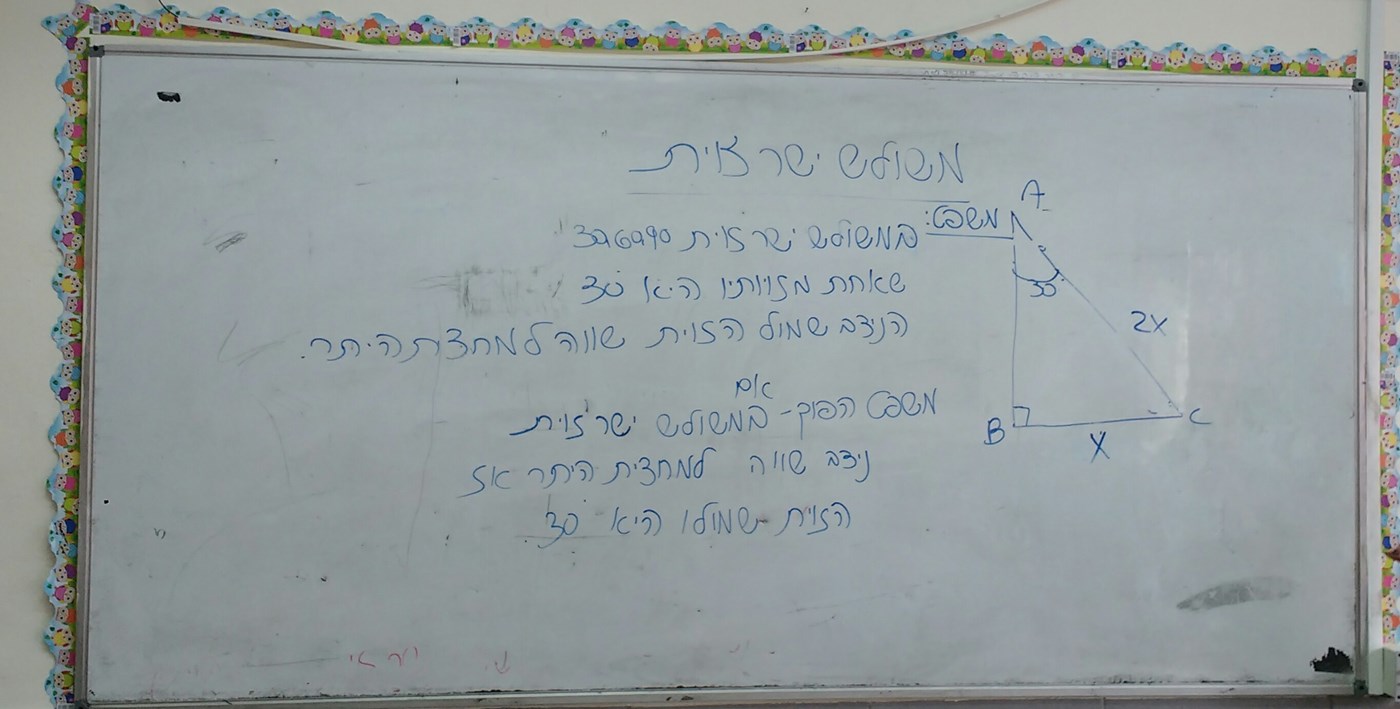 משולש ישר זוית
משפט: במשולש ישר זוית 30,60,90
שאחת מזויותיו היא 30°
הניצב שמול הזוית שווה למחצית היתר.
משפט הפוך - אם במשולש ישר זוית
ניצב שווה למחצית היתר אז
הזוית שמולו היא 30°
A
30°
2x
B
C
x